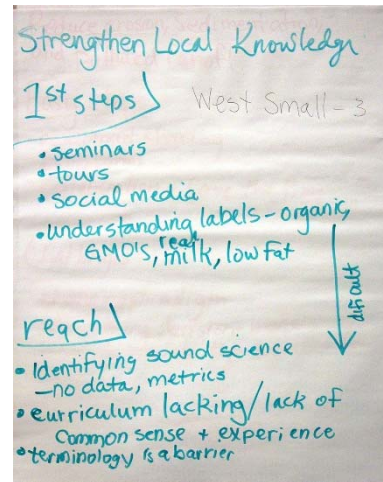 Strengthen Local Knowledge
1st steps
West Small - 3
• seminars
• tours
• social media
• understanding labels - organic,
real
GMO'S, milk, low fat
dificult
reach
• Identifying sound science
- no data, metrics
• curriculum lacking / lack of
Common sense + experience
• terminology is a barrier